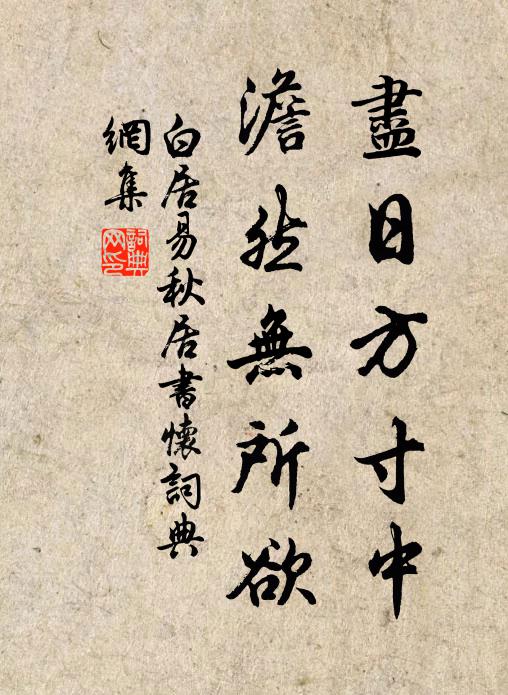 盡日方寸中
澹然無所欲
白居易秋居書懷詞典
網集
詞典
网印